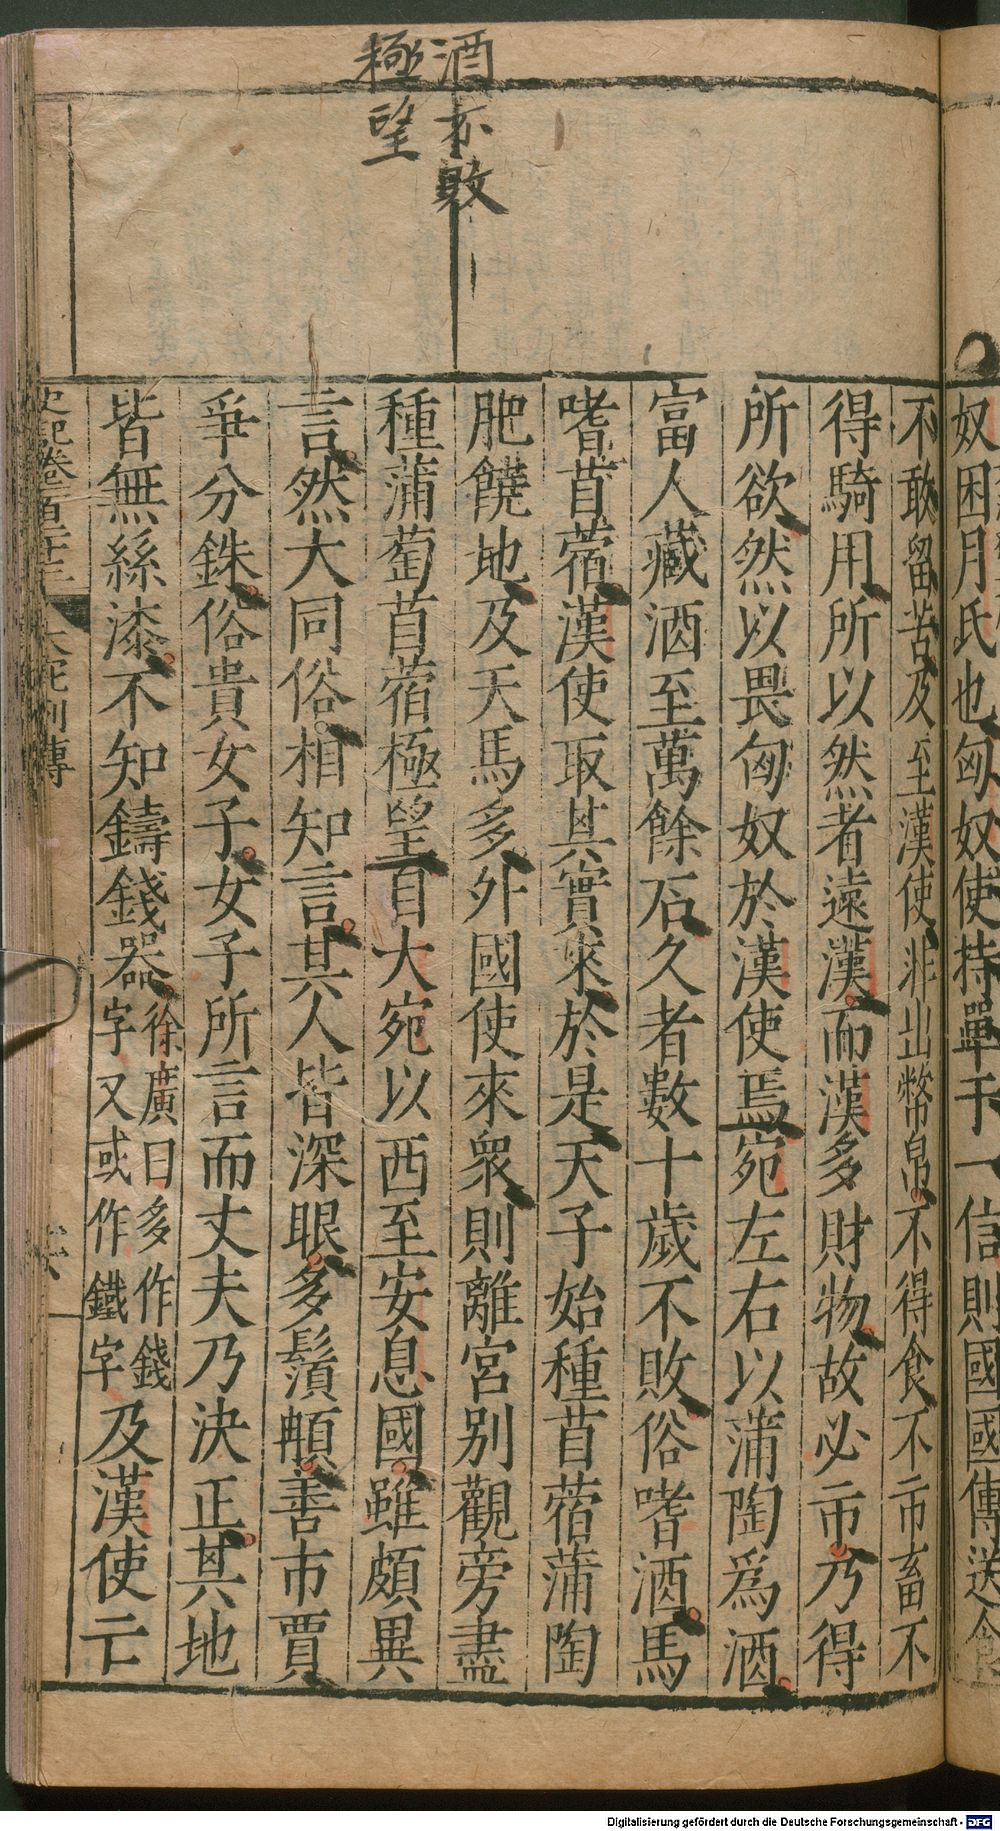 酒亦敗
極望
奴困月氏也匈奴使持單于一信則國國傳送食
不敢留苦及至漢使非出幣帛不得食不市畜不
得騎用所以然者遠漢而漢多財物故必市乃得
所欲然以畏匈奴於漢使焉宛左右以蒲陶爲酒
富人藏酒至萬餘石久者數十歲不敗俗嗜酒馬
嗜苜蓿漢使取其實來於是天子始種苜蓿蒲陶
肥饒地及天馬多外國使來衆則離宮别觀旁盡
種蒲萄苜蓿極望自大宛以西至安息國雖頗異
言然大同俗相知言其人皆深眼多鬚䫇善市賈
爭分銖俗貴女子女子所言而丈夫乃決正其地
皆無絲漆不知鑄錢器徐廣曰多作錢字又或作鐵字及漢使亡
史記卷一百二十三 大宛列傳
Digitalisierung gefördert durch die Deutsche Forschungsgemeinschaft - DFG